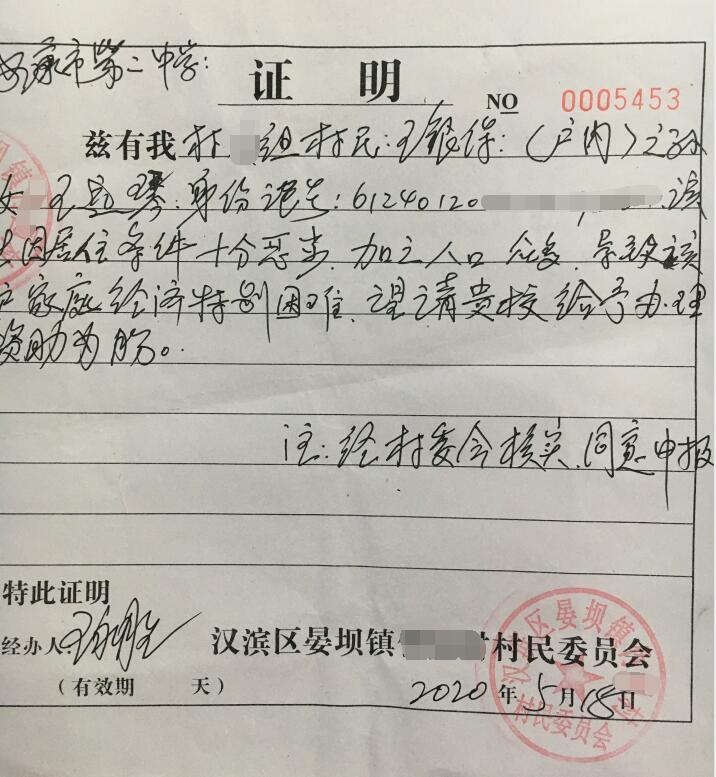 安康市第二中学:
证 明
NO 0005453
兹有我村 组村民:王银保:(户内)之孙
女 王 琴.身份证号:61240120 该
因居住条件十分恶劣,加之人口众多,导致该
户家庭经济特别困难,望请贵校给予办理
资助为盼。
注:经村委会核实,同意申报
特此证明
经办人
汉滨区晏坝镇 村民委员会
(有效期 天)
2020年5月18日
汉滨区晏坝镇 村
村民委员会